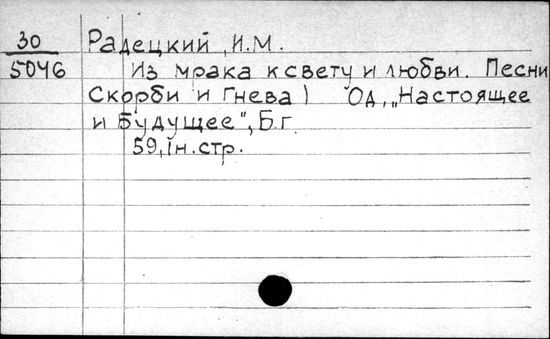 30 Радецкий, И.М.
5046 Из мрака к свету и любви. Песни
Скорби и Гнева) Од, „Настоящее
и Будущее", Б.г.
59, Iн.стр.